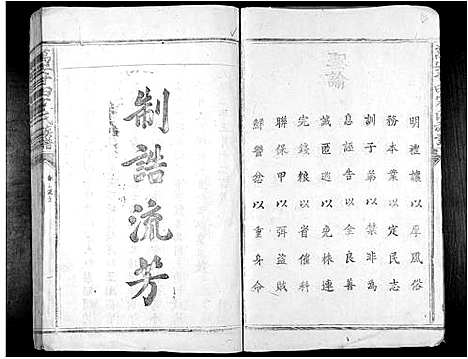 聖諭
明禮讓以厚風俗
務本業以定民志
訓子弟以禁非為
息誣告以全良善
誡匿逃以免株連
完錢粮以省催科
聯保甲以弭盜賊
解讐忿以重身命
制誥流芳